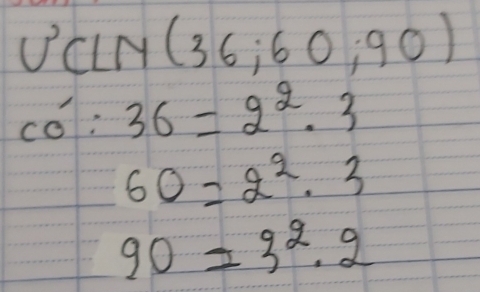 ƯCLN(36;60;90)
có: 36 = 2². 3
60 = 2². 3
90 = 3². 2